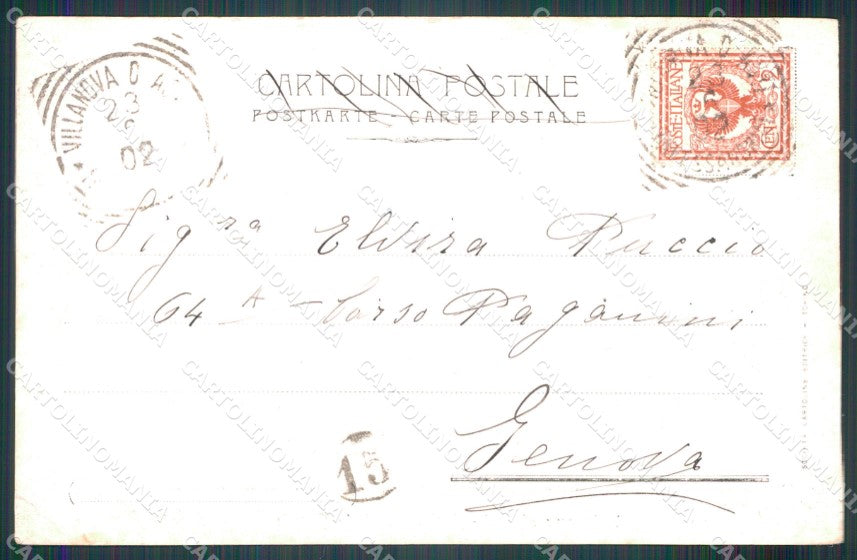 CARTOLINA POSTALE
POSTKARTE - CARTE POSTALE
VILLANOVA D
23
02
POSTE ITALIANE
CEN. 2
Sigra Elvira Puccio
64 A - Corso Paganini
Genova
15
CARTOLINOMANIA